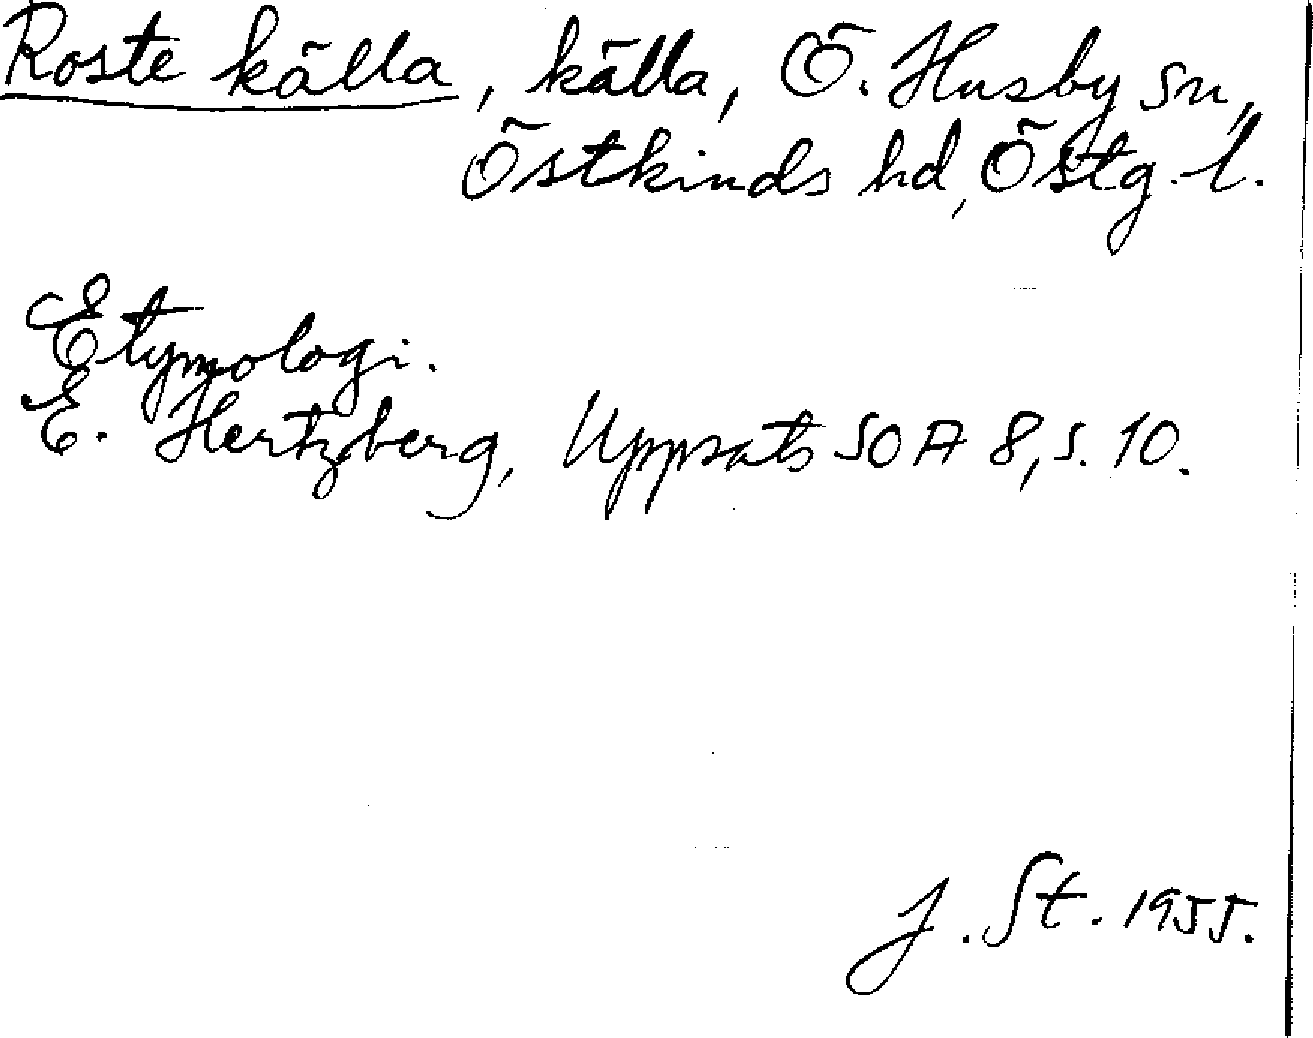 Roste källa, källa, Ö. Husby sn,
Östkinds hd, Östg. l.
Etymologi.
E. Hertzberg, Uppsats SOA 8, s. 10.
J. St. 1955.